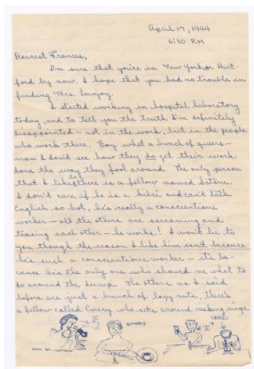 April 17, 1944
6:30 P.M
Dearest Frances,
I'm sure that you're in New York or Hart-
ford by now. I hope that you had no trouble in
finding Mrs. Lovejoy.
I started working in hospital laboratory
today and to tell the truth I'm definitely
disappointed - not in the work, but in the people
who work there. Boy what a bunch of
I don't see how they do get their work
done the way they fool around. The only person
that I like there is a fellow named Satow.
I don't care if he is a kibei and can't talk
English so hot, he's really a conscientious
worker - all the others are screaming and
teasing each other - he works! I would lie to
you though the reason I like him isn't because
he's such a conscientious worker - it's be-
cause he's the only one who showed me what to
do around the dump. The others as I said
before are just a bunch of lazy nuts, there's
a fellow called who sits around making rings